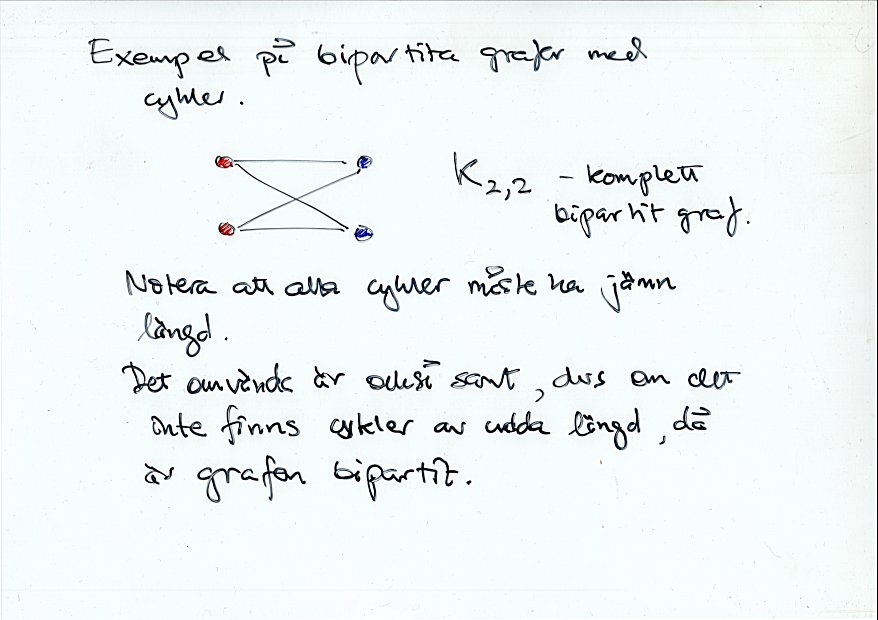 Exempel på bipartita grafer med
cykler.
K2,2 - komplett
bipartit graf.
Notera att alla cykler måste ha jämn
längd.
Det omvända är också sant, dvs om det
inte finns cykler av udda längd, då
är grafen bipartit.